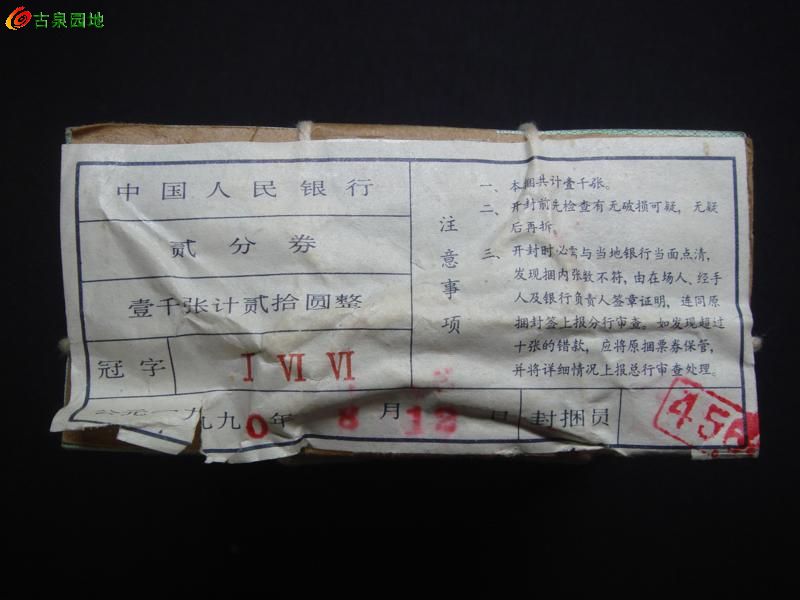 古泉园地
中国人民银行
贰分券
壹千张计贰拾圆整
冠字 I VI VI
公元一九九0年8月13日
封捆员
456
注意事项
一、本捆共计壹千张。
二、开封前先检查有无破损可疑，无疑
后再拆。
三、开封时必需与当地银行当面点清，
发现捆内张数不符，由在场人、经手
人及银行负责人签章证明，连同原
捆封签上报分行审查。如发现超过
十张的错款，应将原捆票券保管，
并将详细情况上报总行审查处理。